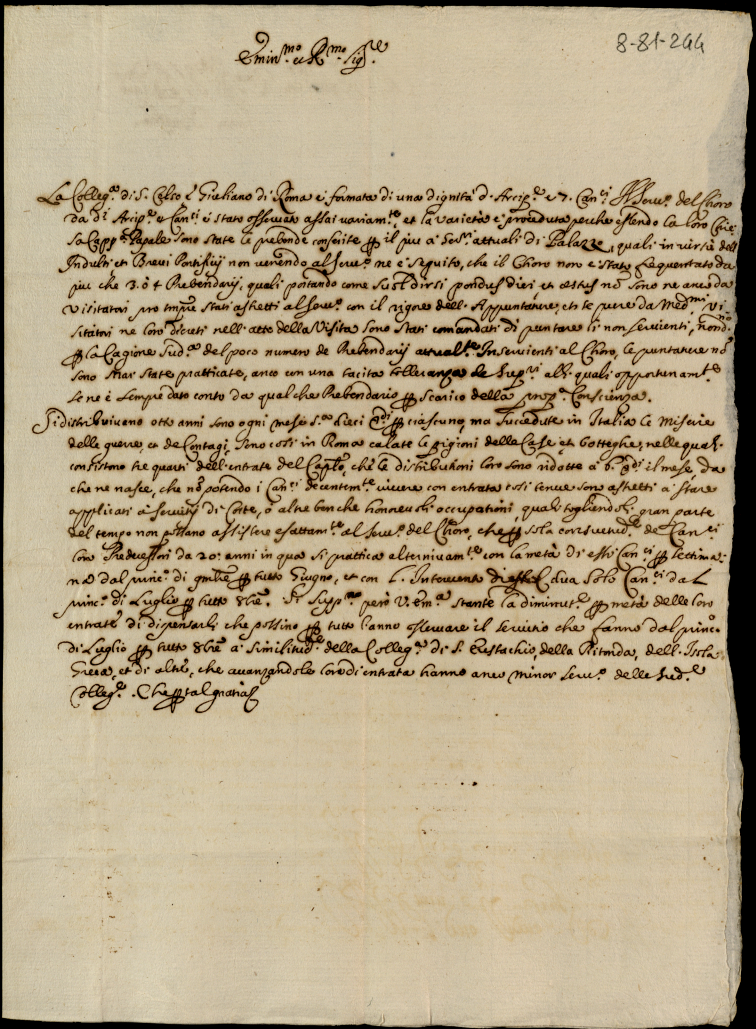 8-81-244
Emin.mo et R.mo Sig.re
La Colleg.ta di S. Celso e Giuliano di Roma è formata di una dignità d'Arcip.te e 7. Can.ci Il Serv.o del Choro
da d.i Arcip.te e Can.ci è stato osservato assai variam.te, et la varietà è proceduta perche essendo la loro Chie
sa Capp.a Papale sono state le prebende conferite per il più a ser.ri attuali di Palazzo, quali in virtù dell'
Indulti et Brevi Pontificij non venendo al serv.o ne è seguito, che il Choro non è stato frequentato da
più che 3. ò 4 Prebendarij, quali portando come suol dirsi pondus diei et æstus nõ sono ne anco da
Visitatori pro tempore stati astretti al serv.o con il rigore dell'Appuntature, et se pure da Med.mi Vi
sitatori ne loro decreti nell'atto della Visita sono stati comandati di puntare li non servienti, nond.no
per la cagione sud.a del poco numero de Prebendarij attual.te Inservienti al Choro, le puntature nõ
sono mai state pratticate, anco con una tacita tolleranza de Sup.ri alli quali opportunam.te
se ne è sempre dato conto da qualche Prebendario per scarico della prop.a Conscienza.
Si distribuivano otto anni sono ogni mese s.a dieci m.ta per ciascuno, ma succedute in Italia le miserie
delle guerre, et de Contagi, sono cosi in Roma calate le pigioni delle Case et botteghe, nelle quali
consistono tre quarti dell'entrate del Cap.lo, che le distributioni loro sono ridotte a 6. il mese, da
che ne nasce, che nõ potendo i Can.ci decentem.te vivere con entrata cosi tenue sono astretti a stare
applicati a servitij di Corte, o altre benche honorevoli occupationi, quali togliendoli gran parte
del tempo non possano assistere esattam.te al serv.o del Choro, che per sola consuetud.e de Can.ci
loro Predecessori da 20. anni in qua si prattica alternivam.te con la metà di essi Can.ci per settima
na dal princ.o di 9mbre per tutto Giugno, et con l'Intervento di essi dua solo Can.ci dal
princ.o di Luglio per tutto 8bre. Si supp.ca però V. Em.a stante la diminut.e per metà delle loro
entrate di dispensarli che possino per tutto l'anno osservare il servitio che fanno dal princ.o
di Luglio per tutto 8bre a similitud.e della Colleg.ta di S. Eustachio, della Ritonda, dell'Isola
Greca, et di altre, che avanzandole loro di entrata hanno anco minor serv.o delle sud.e
Colleg.te. Che per tal gratia